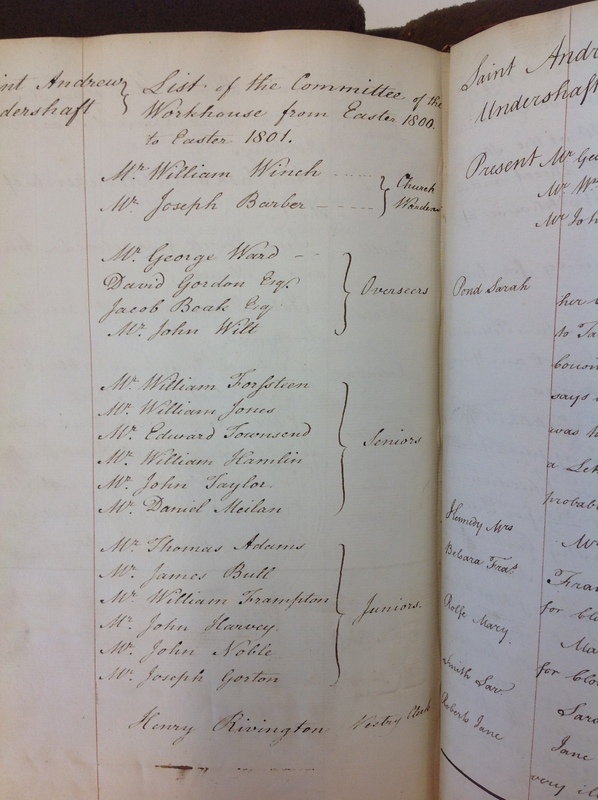 int Andrew
dershaft
List of the Committee of the
Workhouse from Easter 1800.
to Easter 1801.
Mr. William Winch
Mr. Joseph Barber
Church
Wardens
Mr. George Ward
David Gordon Esqr.
Jacob Boak Esq
Mr. John Will
Overseers
Mr. William Forssteen
Mr. William Jones
Mr. Edward Townsend
Mr. William Hamlin
Mr. John Taylor.
Mr. Daniel Meilan
Seniors
Mr. Thomas Adams
Mr. James Bull
Mr. William Frampton
Mr. John Harvey.
Mr. John Noble
Mr. Joseph Gorton
Juniors.
Henry Rivington Vestry Clerk
Saint Andre
Undershaft
Present Mr Geo
Mr Wm
Mr Joh
Pond Sarah
her
to Ta
says
was
a Let
probab
Mrs
Fras.
Mr
Fran
for Clo
Rolfe Mary.
Ma
for Clo
Smith Sar.
Sara
Roberts Jane
Jane
very ill